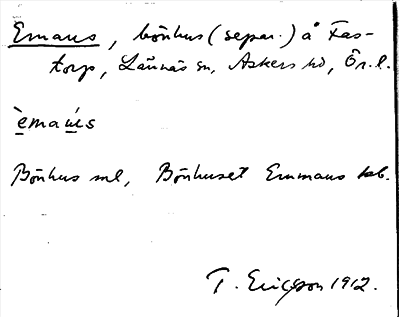 Emaus, bönhus (separ.) å Fas-
torp, Lännäs sn, Askers hd, Ör. l.
èmaús
Bönhus ml, Bönhuset Emmaus kb.
T. Ericsson 1912.